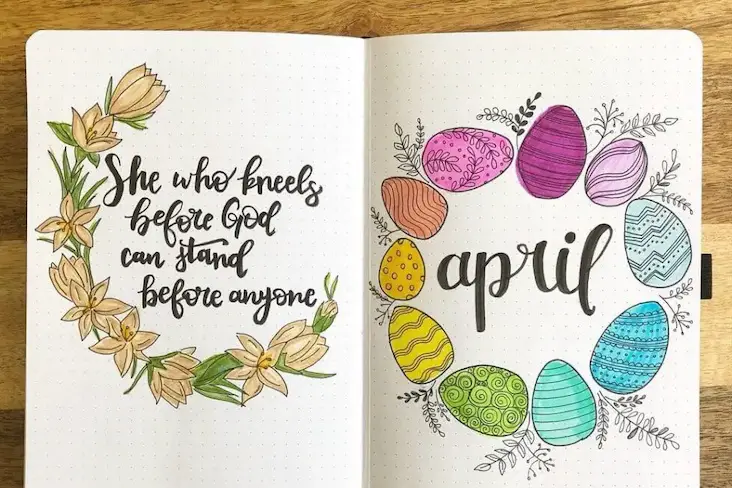 She who kneels
before God
can stand
before anyone
april